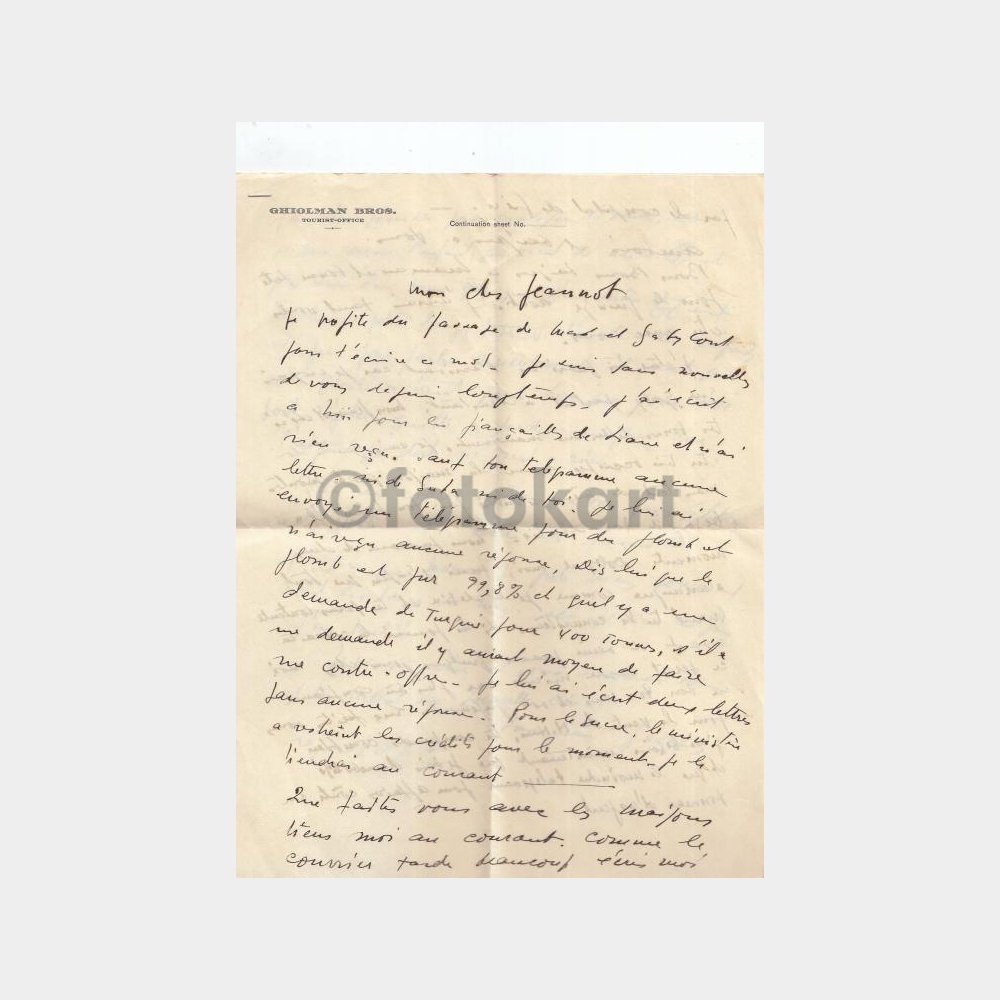 GHIOLMAN BROS.
TOURIST-OFFICE
Continuation sheet No.
Mon cher Jeannot
Je profite du passage de et Gaby
pour t'écrire ce mot. Je suis sans nouvelles
de vous depuis longtemps. J'ai écrit
a pour les fiançailles de Liane et n'ai
rien reçu. sauf ton telegramme aucune
lettre ni de ni de toi. Je lui ai
envoyé un télégramme pour du plomb et
n'ai reçu aucune réponse. Dis lui que le
plomb et pur 99,8% et qu'il y a une
demande de Turquie pour 400 Tonnes, s'il
me demande il y aurait moyen de faire
une contre-offre. Je lui ai écrit deux lettres
sans aucune réponse. Pour le sucre, le ministère
a restreint les crédits pour le moment. Je le
tiendrai au courant
Que faites vous avec les maisons
tiens moi au courant. Comme le
courrier tarde beaucoup écris moi
©fotokart